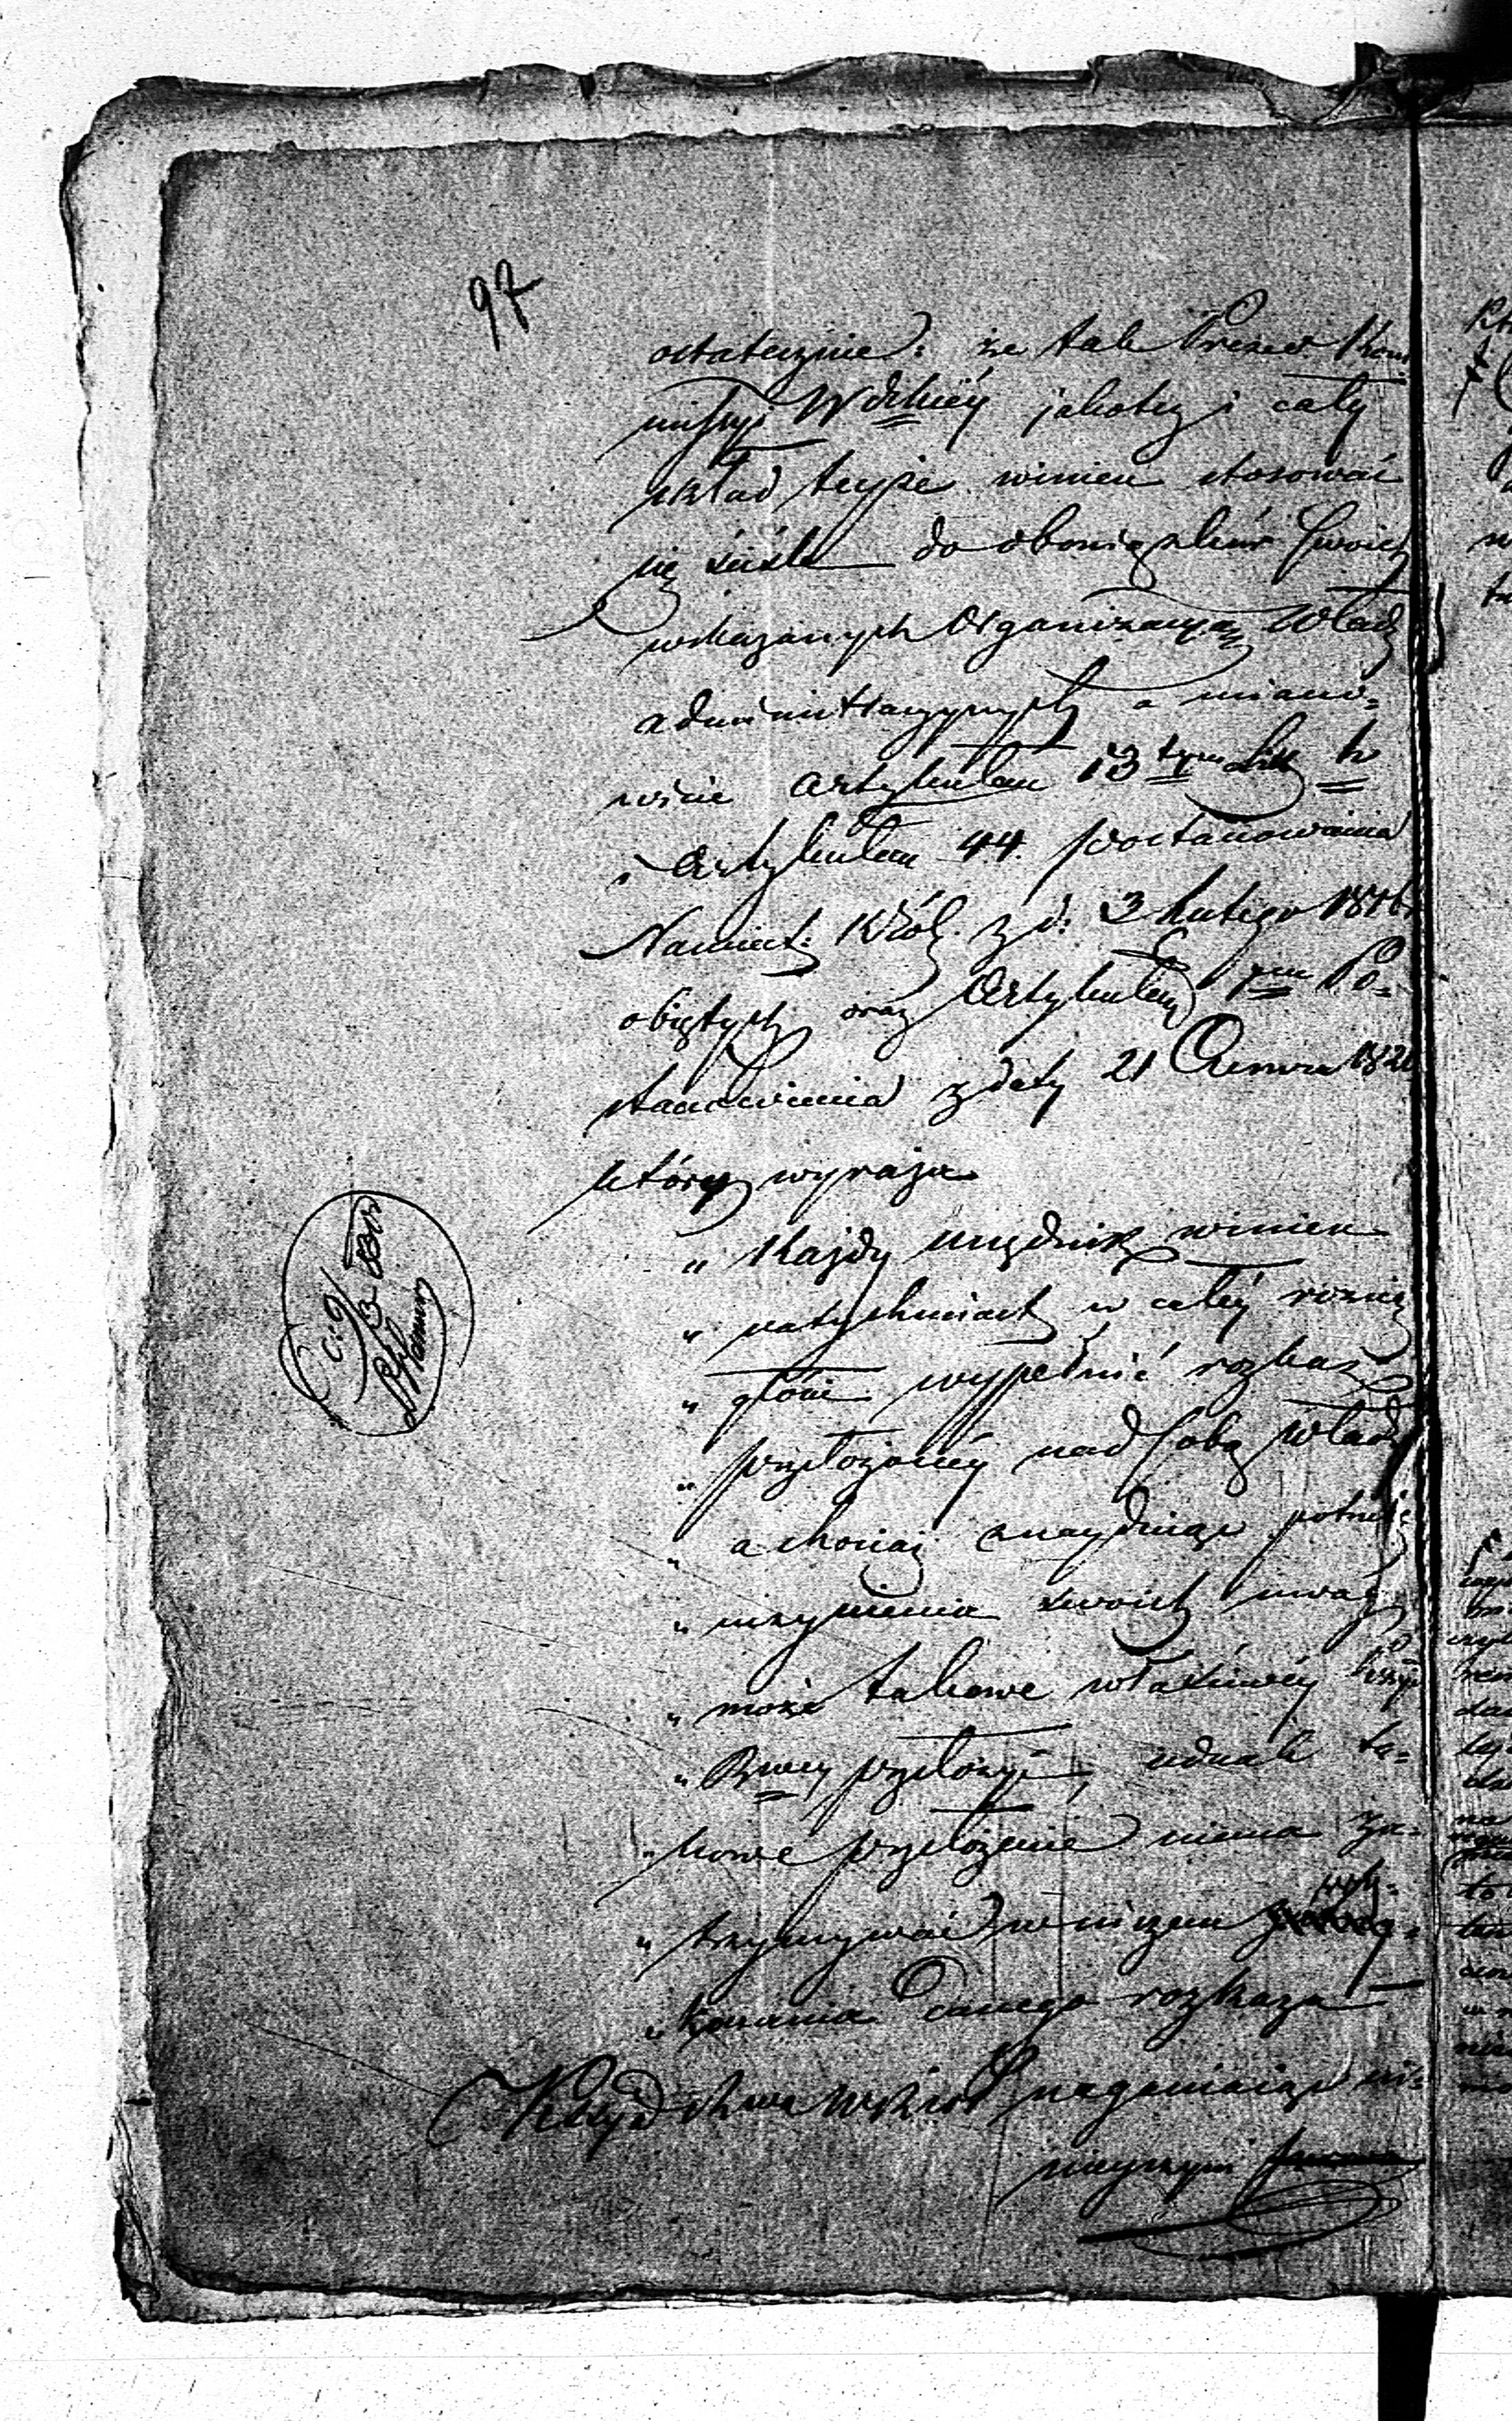 97
ostatecznie: że tak Prezes Kom
missyi Wdzkiéy jakotéż i cały
skład teyże winien stosować
się ściśle do obowiązków swoich
wskazanych Organizacyą Władz
administracyjnych a miano=
wicie Artykułem 13tym Litt. h
i Artykułem 44. postanowienia
Namiest: Król. z d: 3 Lutego 1816
obiętych oraz Artykułem Po=
stanowienia z daty 21 Czerwca 182
który wyraża
„ Każdy urzędnik winien
„ natychmiast w całéy rozcią
„ głości wypełnić rozkaz
„ przełożonéy nad sobą władzy
„ a chociaż znayduiąc potrze
„ uczynienia swoich uwag
„ może takowe właściwéy
„ przełożyć, iednak ta=
„ kowe przełożenie niema za=
„ trzymywać w niczem wyk=
„ konania danego rozkazu
naganiaiąc ni=
nieyszym